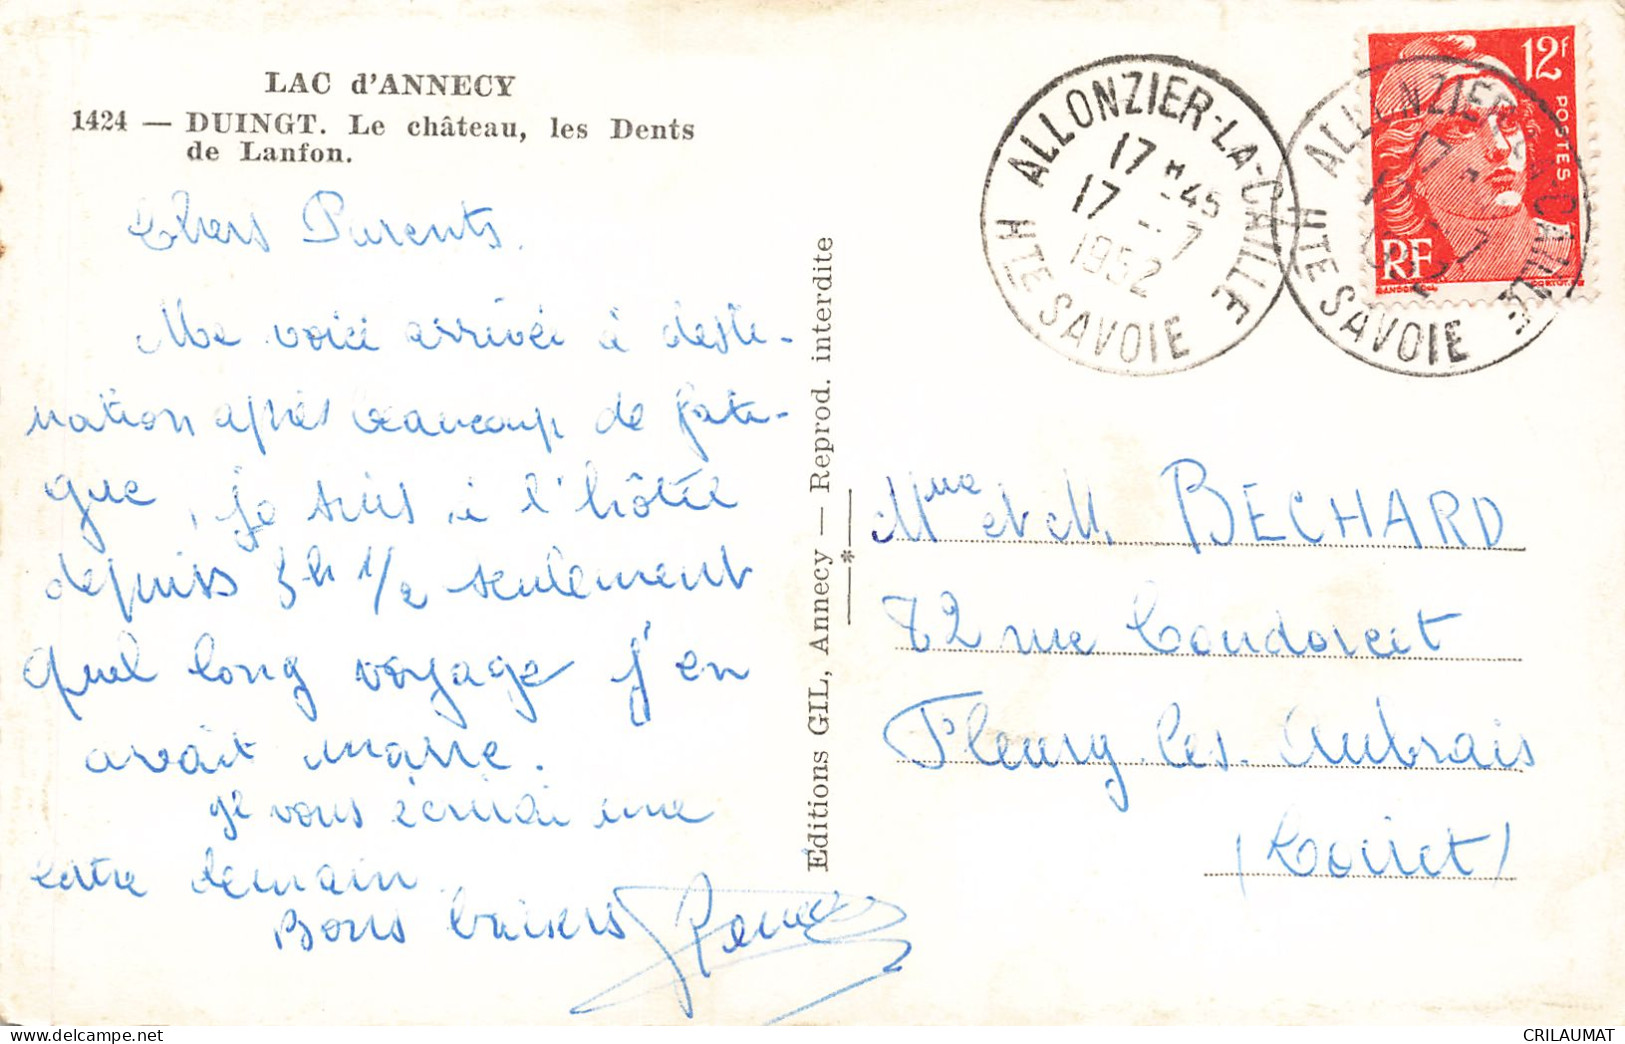 LAC d'ANNECY
1424 — DUINGT. Le château, les Dents
de Lanfon.
Chers Parents.
Me voici arrivée à desti-
nation après beaucoup de fati-
gue, je suis à l'hôtel
depuis 5h 1/2 seulement
quel long voyage j'en
avait marre.
je vous écrirai une
lettre demain
Bons baisers
Editions GIL, Annecy — Reprod. interdite
*
ALLONZIER-LA-CAILLE
17H45
17 -7
1952
HTE SAVOIE
ALLONZIER-LA-CAILLE
17 -7
1952
HTE SAVOIE
12F
POSTES
RF
GANDON
CORTOT
Mme et M. BECHARD
72 rue Condorcet
Fleury-les-Aubrais
(Loiret)
delcampe.net
CRILAUMAT